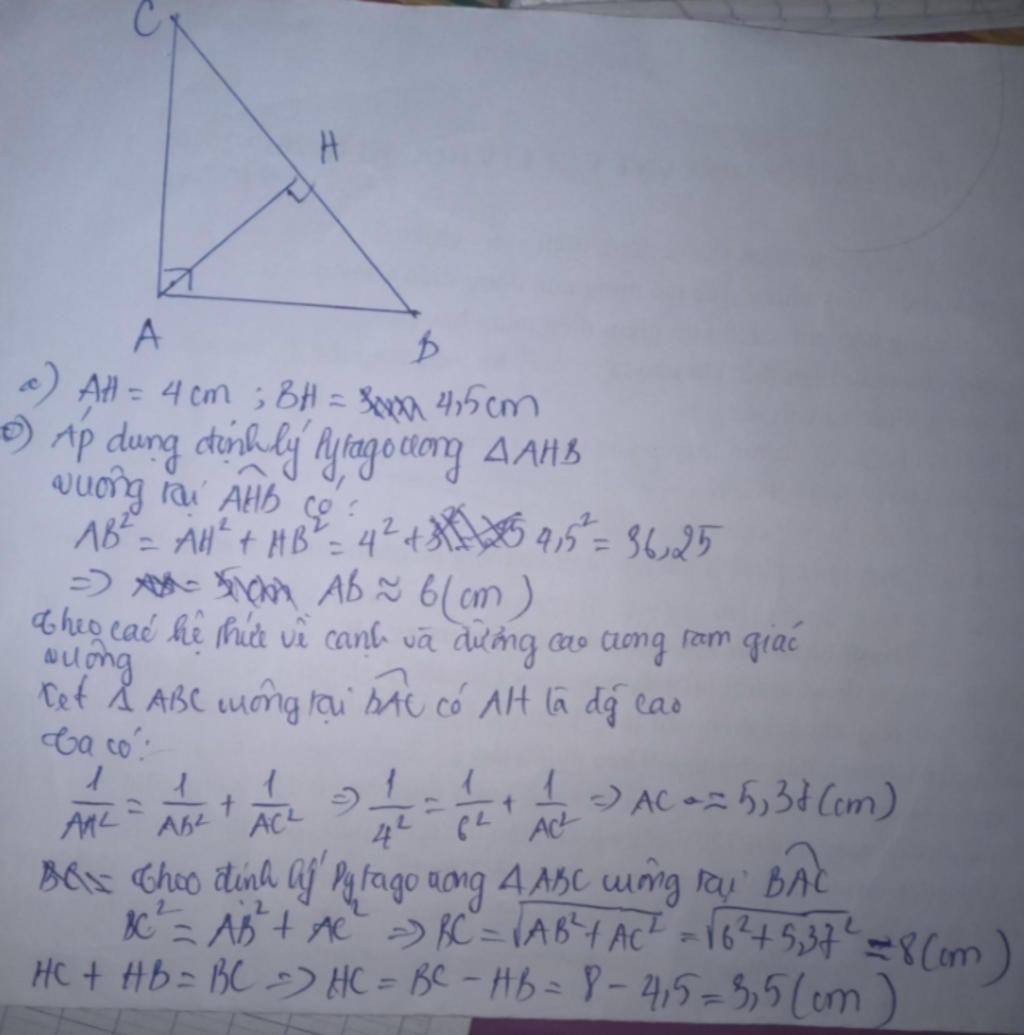 C
H
A
B
a) AH = 4cm ; BH = 4,5cm
Áp dụng định lý Pytago trong ΔAHB
vuông tại AHB có:
AB² = AH² + HB² = 4² + 4,5² = 36,25
=> AB ≈ 6(cm)
Theo các hệ thức về cạnh và đường cao trong tam giác
vuông
Xét Δ ABC vuông tại BAC có AH là đg cao
Ta có:
1/AH² = 1/AB² + 1/AC² => 1/4² = 1/6² + 1/AC² => AC = 5,37(cm)
Theo định lý Pytago trong ΔABC vuông tại BAC
BC² = AB² + AC² => BC = √(AB² + AC²) = √(6² + 5,37²) = 8(cm)
HC + HB = BC => HC = BC - HB = 8 - 4,5 = 3,5(cm)